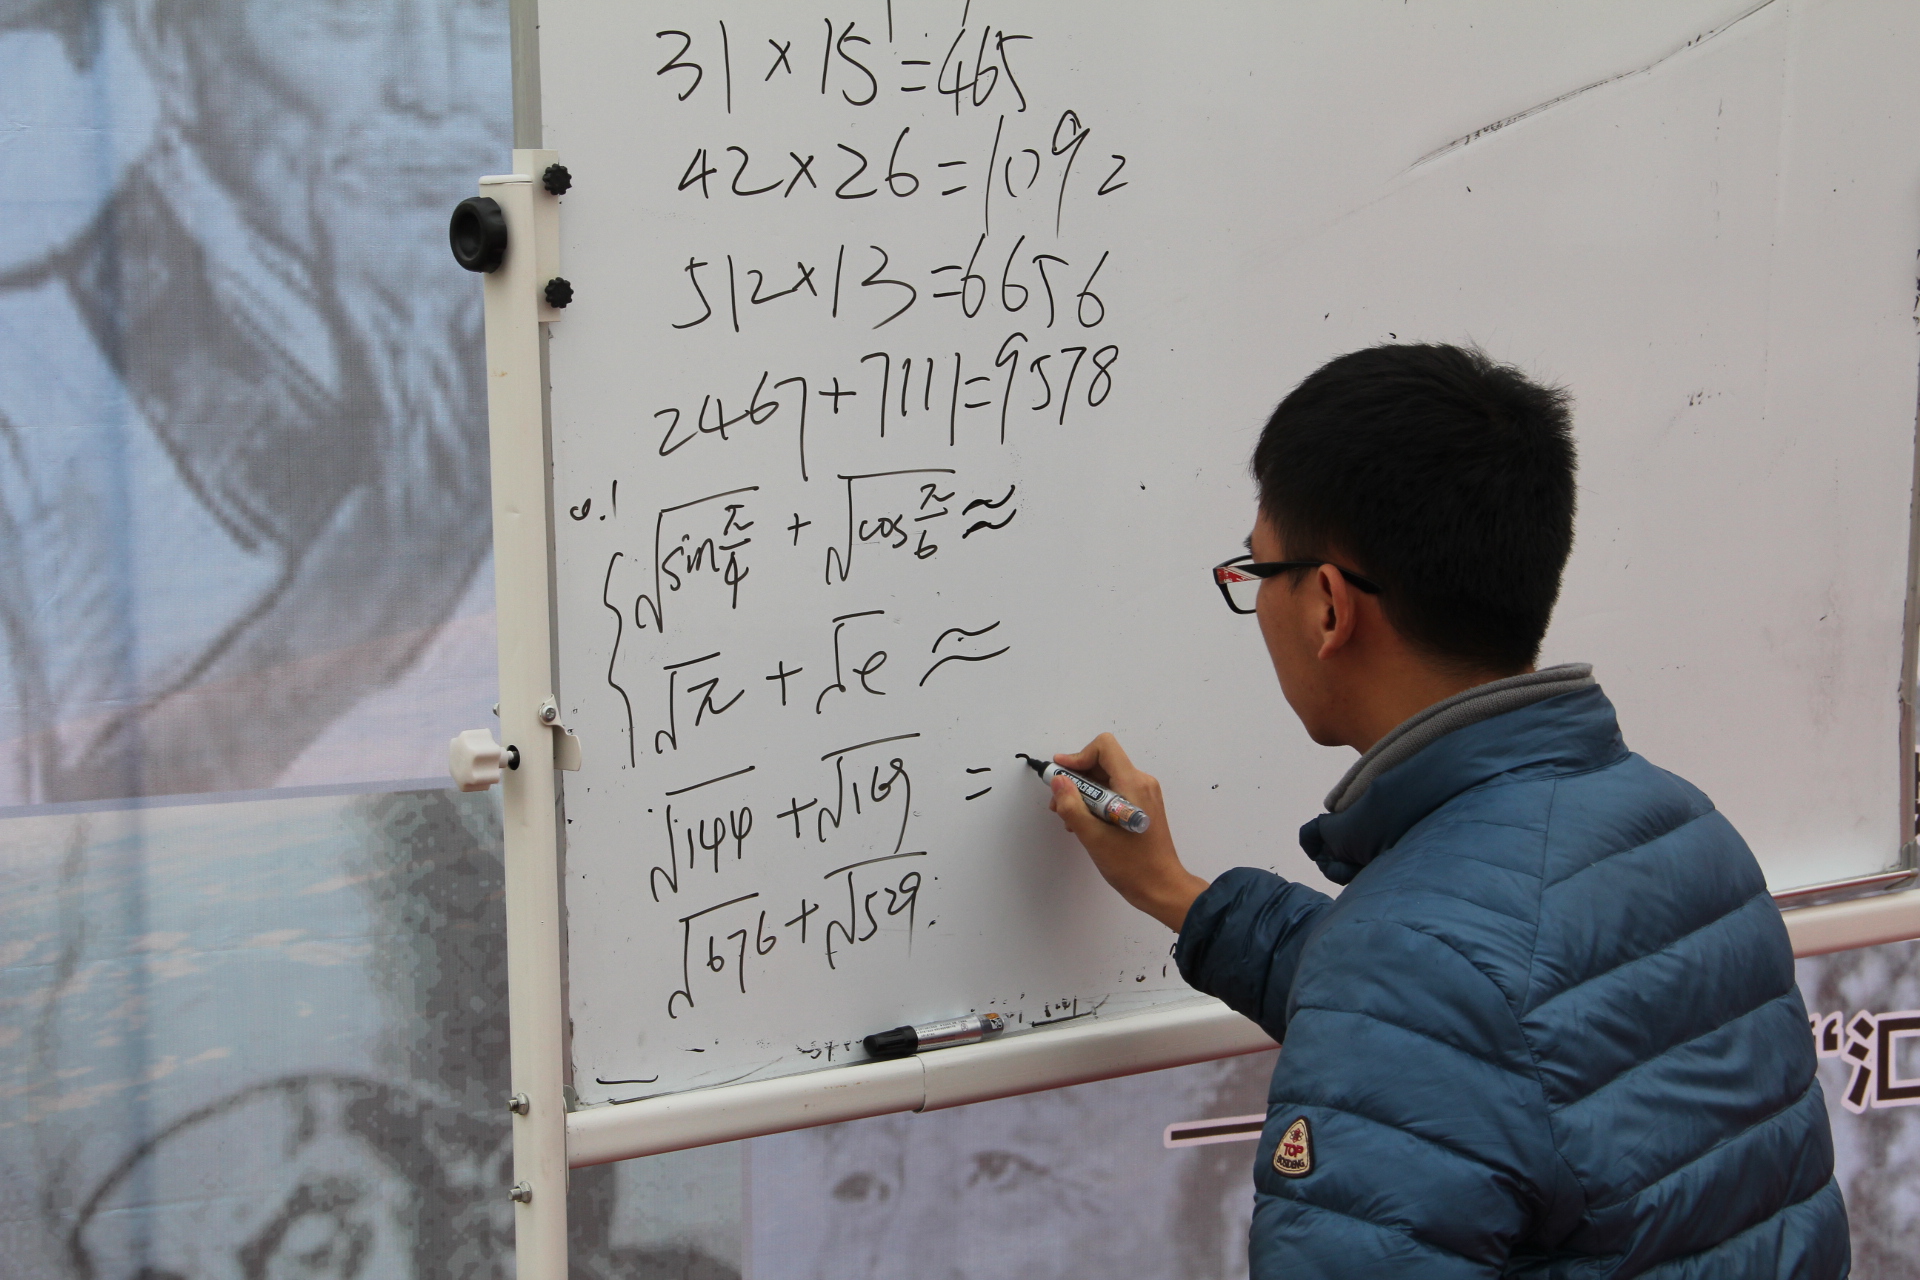 31 × 15 = 465
42 × 26 = 1092
512 × 13 = 6656
2467 + 7111 = 9578
0.1
√sin π/4 + √cos π/6 ≈
√π + √e ≈
√144 + √169 =
√676 + √529
TOP
BOSIDENG
“汇